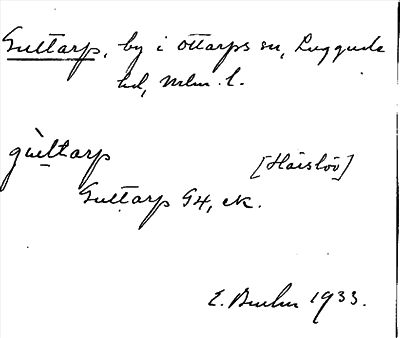 Gulltarp, by i Ottarps sn, Luggude
hd, Mlm. l.
gùltarp [Häislöv]
Gulltarp G4, ek.
1933.